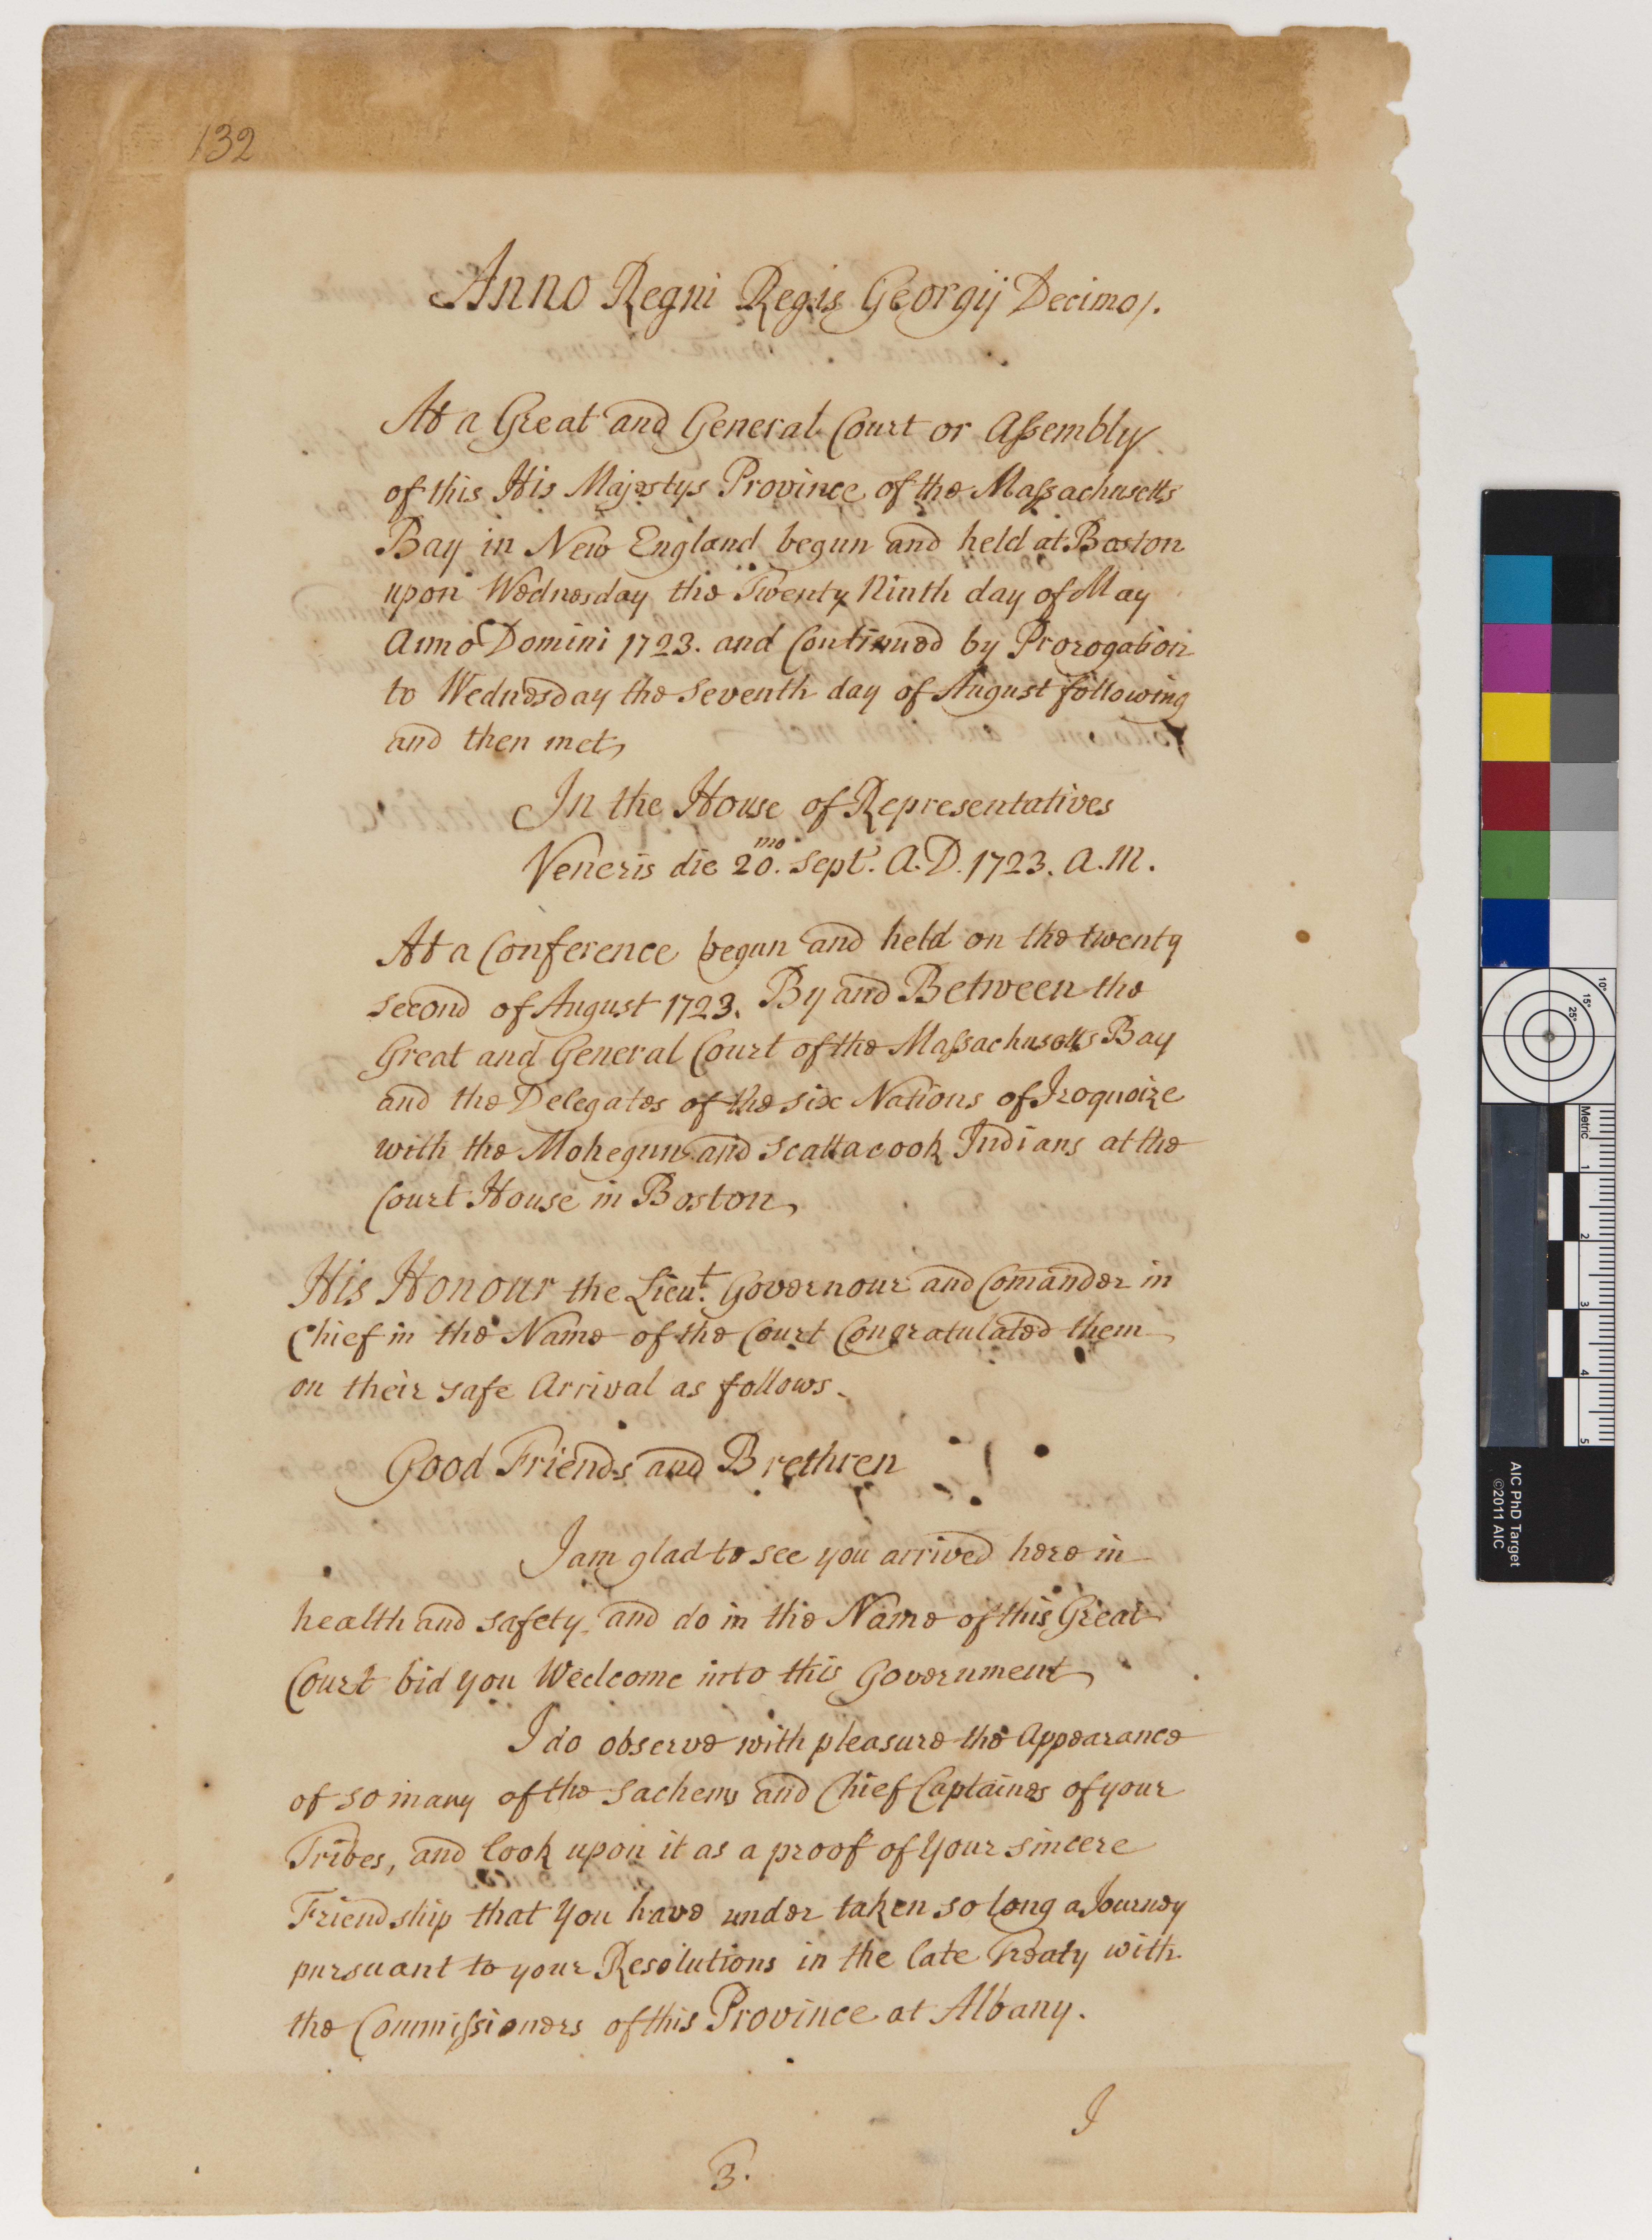 132
Anno Regni Regis Georgij Decimo/.
At a Great and General Court or Assembly
of this His Majestys Province of the Massachusetts
Bay in New England begun and held at Boston
upon Wednesday the Twenty Ninth day of May
Anno Domini 1723. and Continued by Prorogation
to Wednesday the Seventh day of August following
and then met,
In the House of Representatives
Veneris die 20.mo Sept.r A.D. 1723. A.M.
At a Conference begun and held on the twenty
second of August 1723. By and Between the
Great and General Court of the Massachusetts Bay
and the Delegates of the six Nations of Iroquoize
with the Mohegun and Scattacook Indians at the
Court House in Boston,
His Honour the Lieu.t Governour and Comander in
Chief in the Name of the Court Congratulated them
on their safe Arrival as follows.
Good Friends and Brethren
I am glad to see you arrived here in
health and safety, and do in the Name of this Great
Court bid you Wellcome into this Government,
I do observe with pleasure the Appearance
of so many of the Sachems and Chief Captaines of your
Tribes, and look upon it as a proof of Your sincere
Friendship that You have under taken so long a Journey
pursuant to your Resolutions in the late Treaty with
the Commissioners of this Province at Albany.
I
3.
10°
15°
25°
Metric
1
2
3
4
5
AIC PhD Target
©2011 AIC